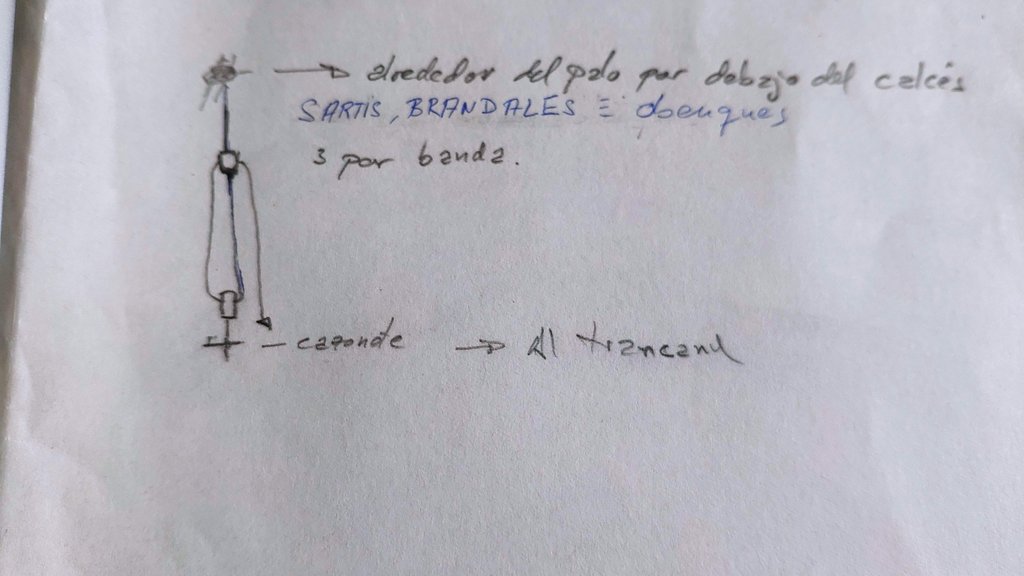 alrededor del palo por debajo del calcés
SARTIS, BRANDALES ≡ obenques
3 por banda.
cazonete → Al trancanil